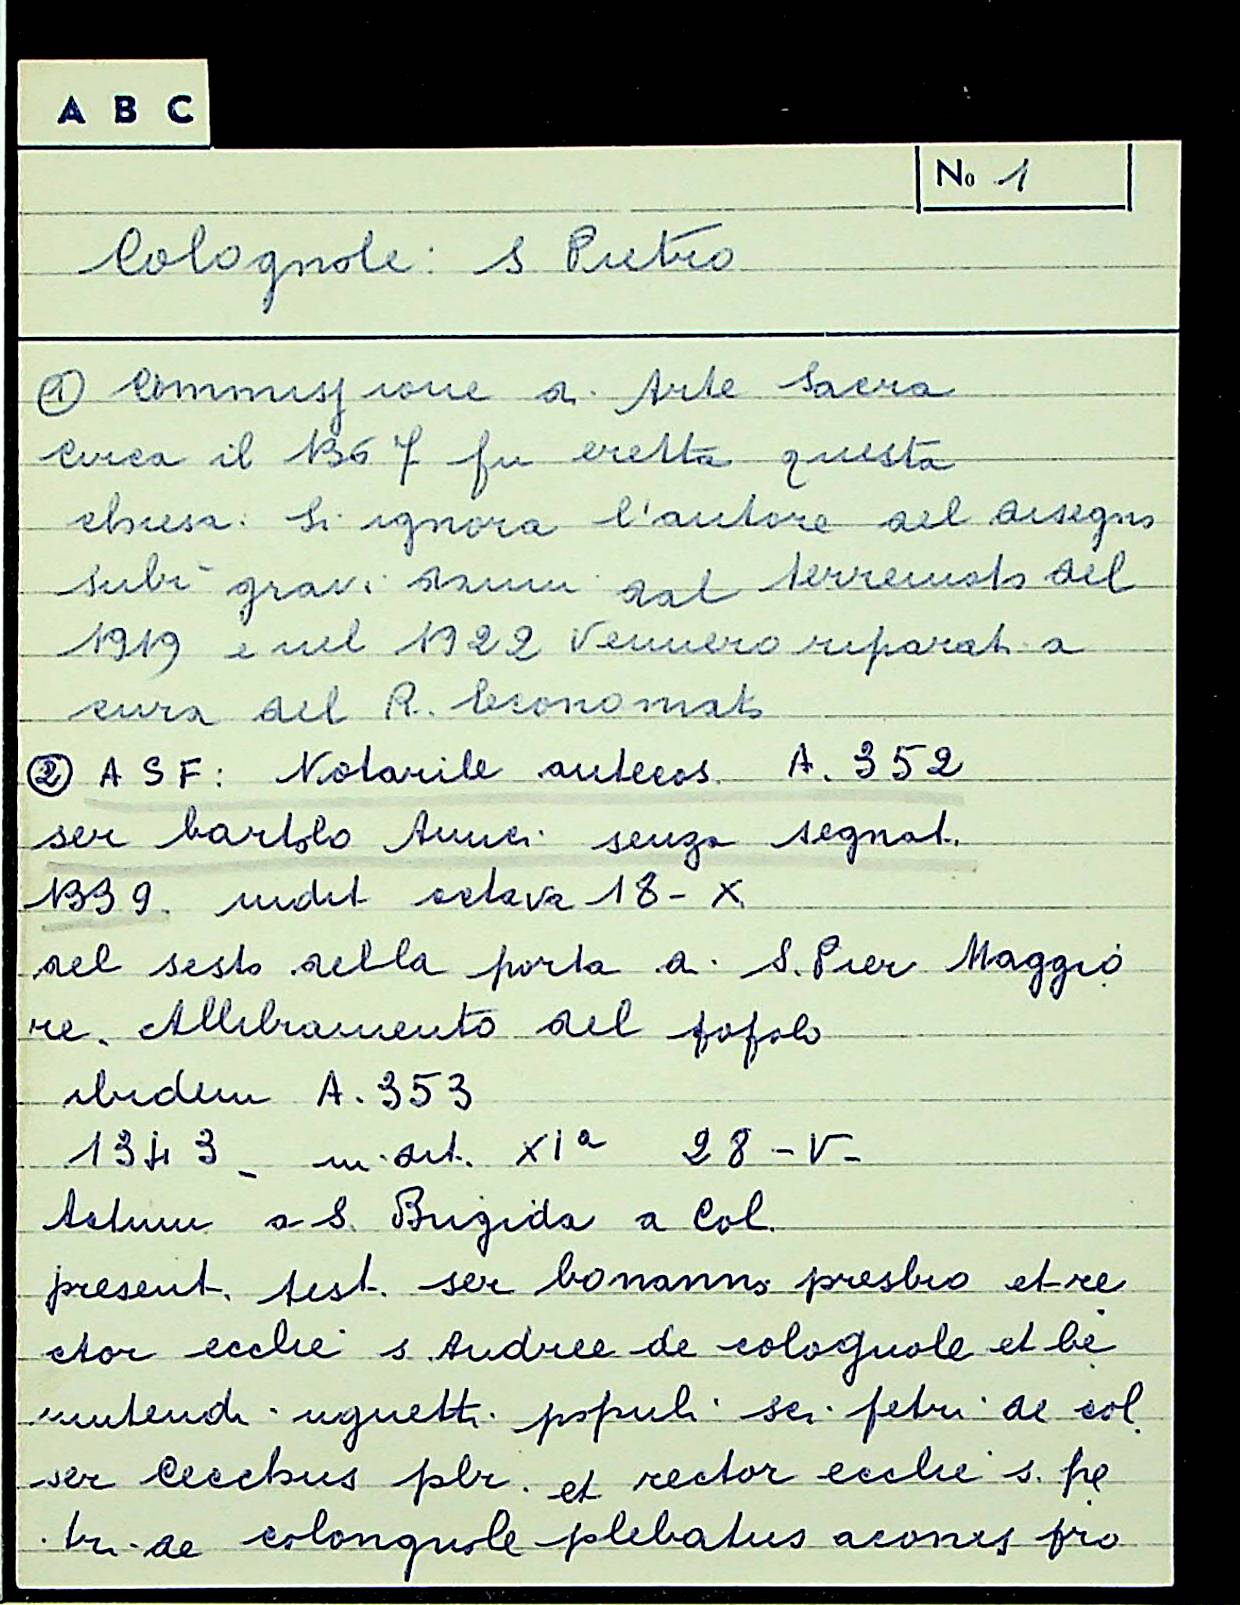 A B C
No 1
Colognole: S Pietro
① Commissione di Arte Sacra
circa il 1367 fu eretta questa
chiesa. Si ignora l'autore del disegno
subì gravi danni dal terremoto del
1919 e nel 1922 vennero riparati a
cura del R. Economato
② ASF: Notarile antecos. A. 352
ser bartolo Amici senza segnat.
1339. indit octava 18-X
del sesto della porta di S. Pier Maggio
re. Allibramento del popolo
ibidem A. 353
1343 - indit. XIª 28-V-
Actum a S. Brigida a Col.
present. test. ser bonanno presbro et re
ctor ecclie s. Andree de colognole et be
nintendi uguetti populi sci petri de col.
ser Cecchus pbr. et rector ecclie s. pe
tri de colongnole plebatus acones pro